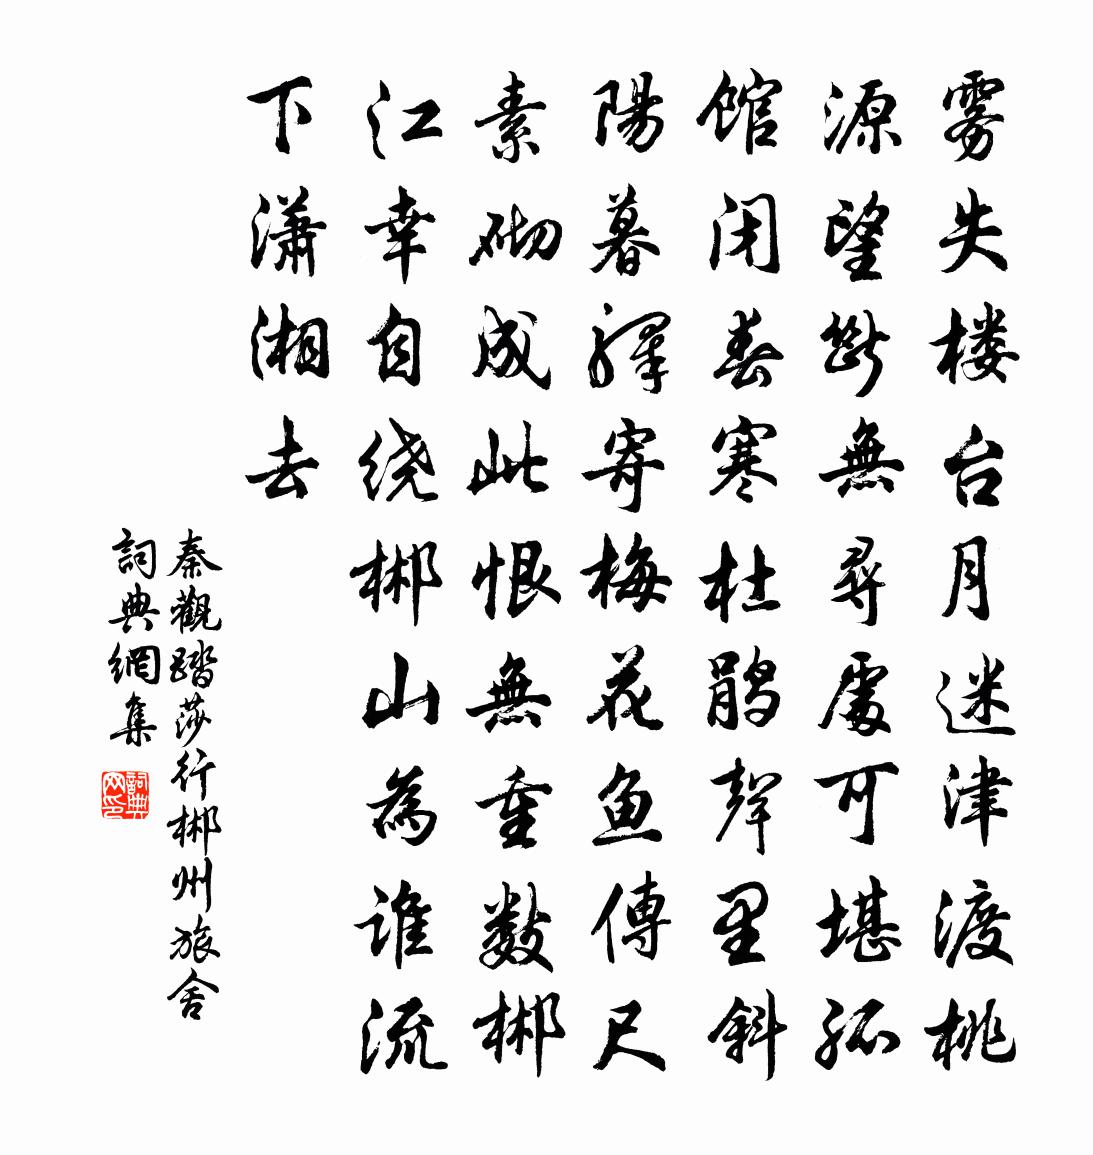 雾失楼台月迷津渡桃
源望断無尋處可堪孤
馆闭春寒杜鹃聲里斜
陽暮驛寄梅花鱼傳尺
素砌成此恨無重数郴
江幸自绕郴山為谁流
下潇湘去
秦觀踏莎行郴州旅舍
詞典網集
詞典網印